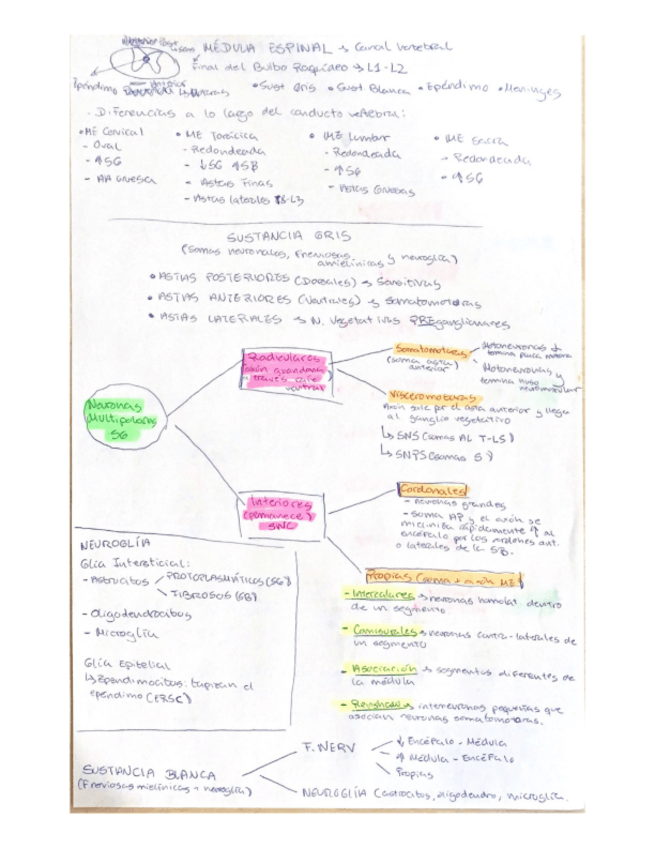 MÉDULA ESPINAL → Canal vertebral
Final del Bulbo Raquídeo → L1-L2
Epéndimo
• Sust Gris • Sust Blanca • Epéndimo • Meninges
- Diferencias a lo largo del conducto vertebral:
• ME Cervical
- Oval
- ↑SG
- AA Gruesa
• ME Torácica
- Redondeada
- ↓SG ↑SB
- Astas Finas
- Astas laterales
• ME Lumbar
- Redondeada
- ↑SG
- Astas Gruesas
• ME Sacra
- Redondeada
- ↑SG
SUSTANCIA GRIS
(Somas neuronales, F nerviosas
amielínicas y neuroglía)
• ASTAS POSTERIORES (Dorsales) → Sensitivas
• ASTAS ANTERIORES (Ventrales) → Somatomotoras
• ASTAS LATERALES → N. Vegetativas PREganglionares
Neuronas
Multipolares
SG
Radiculares
(axón abandona
a través raíz
ventral)
Somatomotoras
(soma asta
anterior)
Motoneuronas α
termina placa motora
Motoneuronas γ
termina huso
neuromuscular
Visceromotoras
Axón sale por el asta anterior y llega
al ganglio vegetativo
↳ SNS (somas AL T-LS)
↳ SNPS (somas S)
Interiores
(permanece)
SNC
Cordonales
- neuronas grandes
- soma AP y el axón se
mieliniza rápidamente ↑ al
encéfalo por los cordones ant.
o laterales de la SB.
Propias (soma + axón ME)
- Intercalares → neuronas homolat dentro
de un segmento
- Comisurales → neuronas contra-laterales de
un segmento
- Asociación → segmentos diferentes de
la médula
- Renshaw → interneuronas pequeñas que
asocian neuronas somatomotoras.
NEUROGLÍA
Glía Intersticial:
- Astrocitos
PROTOPLASMÁTICOS (SG)
FIBROSOS (SB)
- Oligodendrocitos
- Microglía
Glía Epitelial
↳ Ependimocitos: tapizan el
epéndimo (
SUSTANCIA BLANCA
(F nerviosas mielínicas + neuroglía)
F. NERV
↓ Encéfalo - Médula
↑ Médula - Encéfalo
Propias
NEUROGLÍA (astrocitos, oligodendro, microglía.